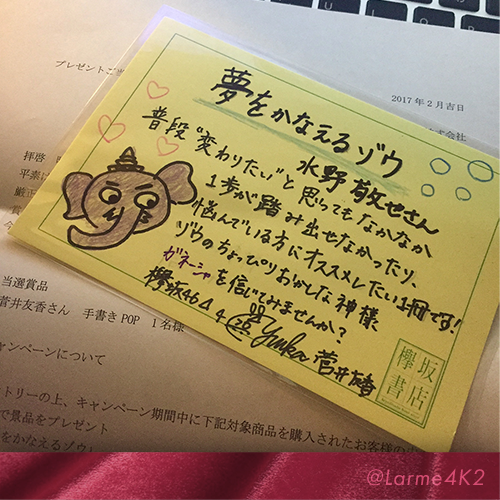 プレゼントご当
2017年2月吉日
すほ会社
夢をかなえるゾウ
水野敬也さん
普段“変わりたい”と思ってもなかなか
1歩が踏み出せなかったり、
悩んでいる方にオススメしたい1冊です!
ゾウのちょっぴりおかしな神様
ガネーシャを信じてみませんか?
欅坂46
Yuuka 菅井友香
欅坂
書店
拝啓
平素は
厳正
賞
今
当選賞品
菅井友香さん 手書きPOP 1名様
キャンペーンについて
トリーの上、キャンペーン期間中に下記対象商品を購入されたお客様の中
で景品をプレゼント
をかなえるゾウ
@Larme4K2